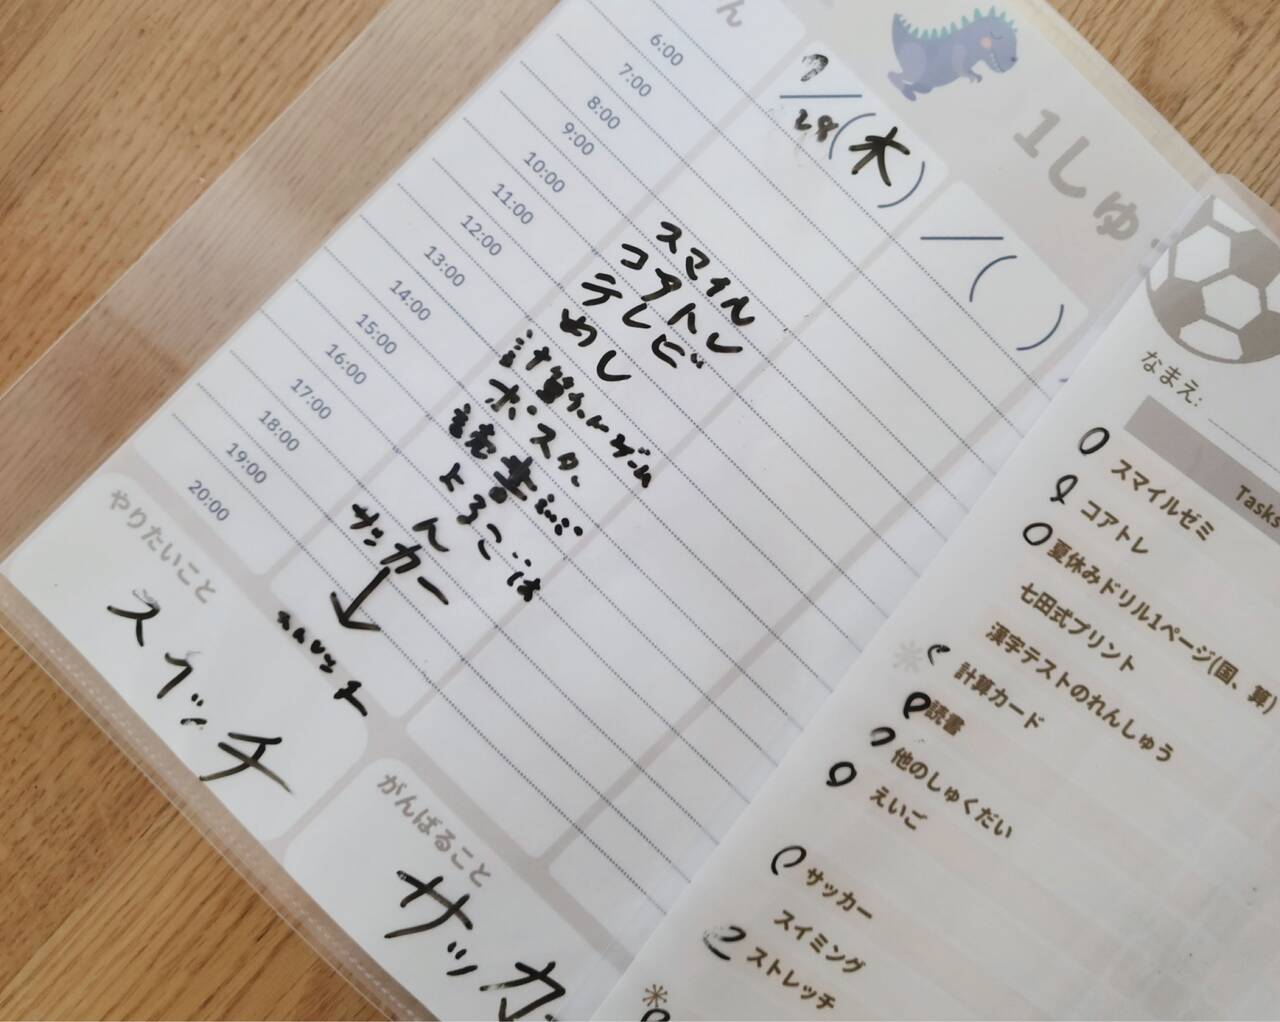 ん
6:00
7:00
8:00
9:00
10:00
11:00
12:00
13:00
14:00
15:00
16:00
17:00
18:00
19:00
20:00
7/28(木)
/( )
1しゅ
スマイル
コアトレ
テレビ
めし
計算 ゲーム
ポスター
読書
サッカー
やりたいこと
スイッチ
がんばること
サッカー
なまえ:
Task
スマイルゼミ
コアトレ
夏休みドリル1ページ(国、算)
七田式プリント
漢字テストのれんしゅう
計算カード
読書
他のしゅくだい
えいご
サッカー
スイミング
ストレッチ